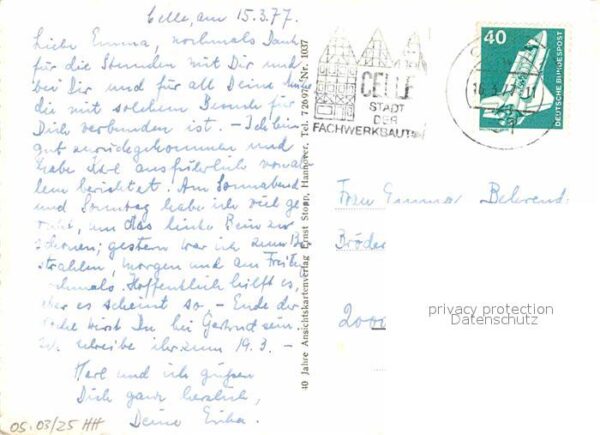 Celle, am 15.3.77.
Liebe Emma, nochmals Dank
für die Stunden mit Dir und
bei Dir und für all Deine
die mit solchem Besuch für
Dich verbunden ist. – Ich bin
gut zurückgekommen und
habe Karl ausführlich von al-
lem berichtet. Am Sonnabend
und Sonntag habe ich viel ge-
ruht, um das linke Bein zu
schonen; gestern war ich zum Be-
strahlen, morgen und am Freitag
nochmals. Hoffentlich hilft es,
aber es scheint so. – Ende der
Woche wirst Du bei Gertrud sein.
Ich schreibe ihr zum 19.3. –
Karl und ich grüßen
Dich ganz herzlich,
Deine Erika.
05.03/25 HH
40 Jahre Ansichtskartenverlag Ernst Stoop, Hannover, Tel. 72697 Nr. 1037
CELLE
STADT
DER
FACHWERKBAUTEN
40
DEUTSCHE BUNDESPOST
Frau Emma Behrend
Bröder
2000
privacy protection
Datenschutz